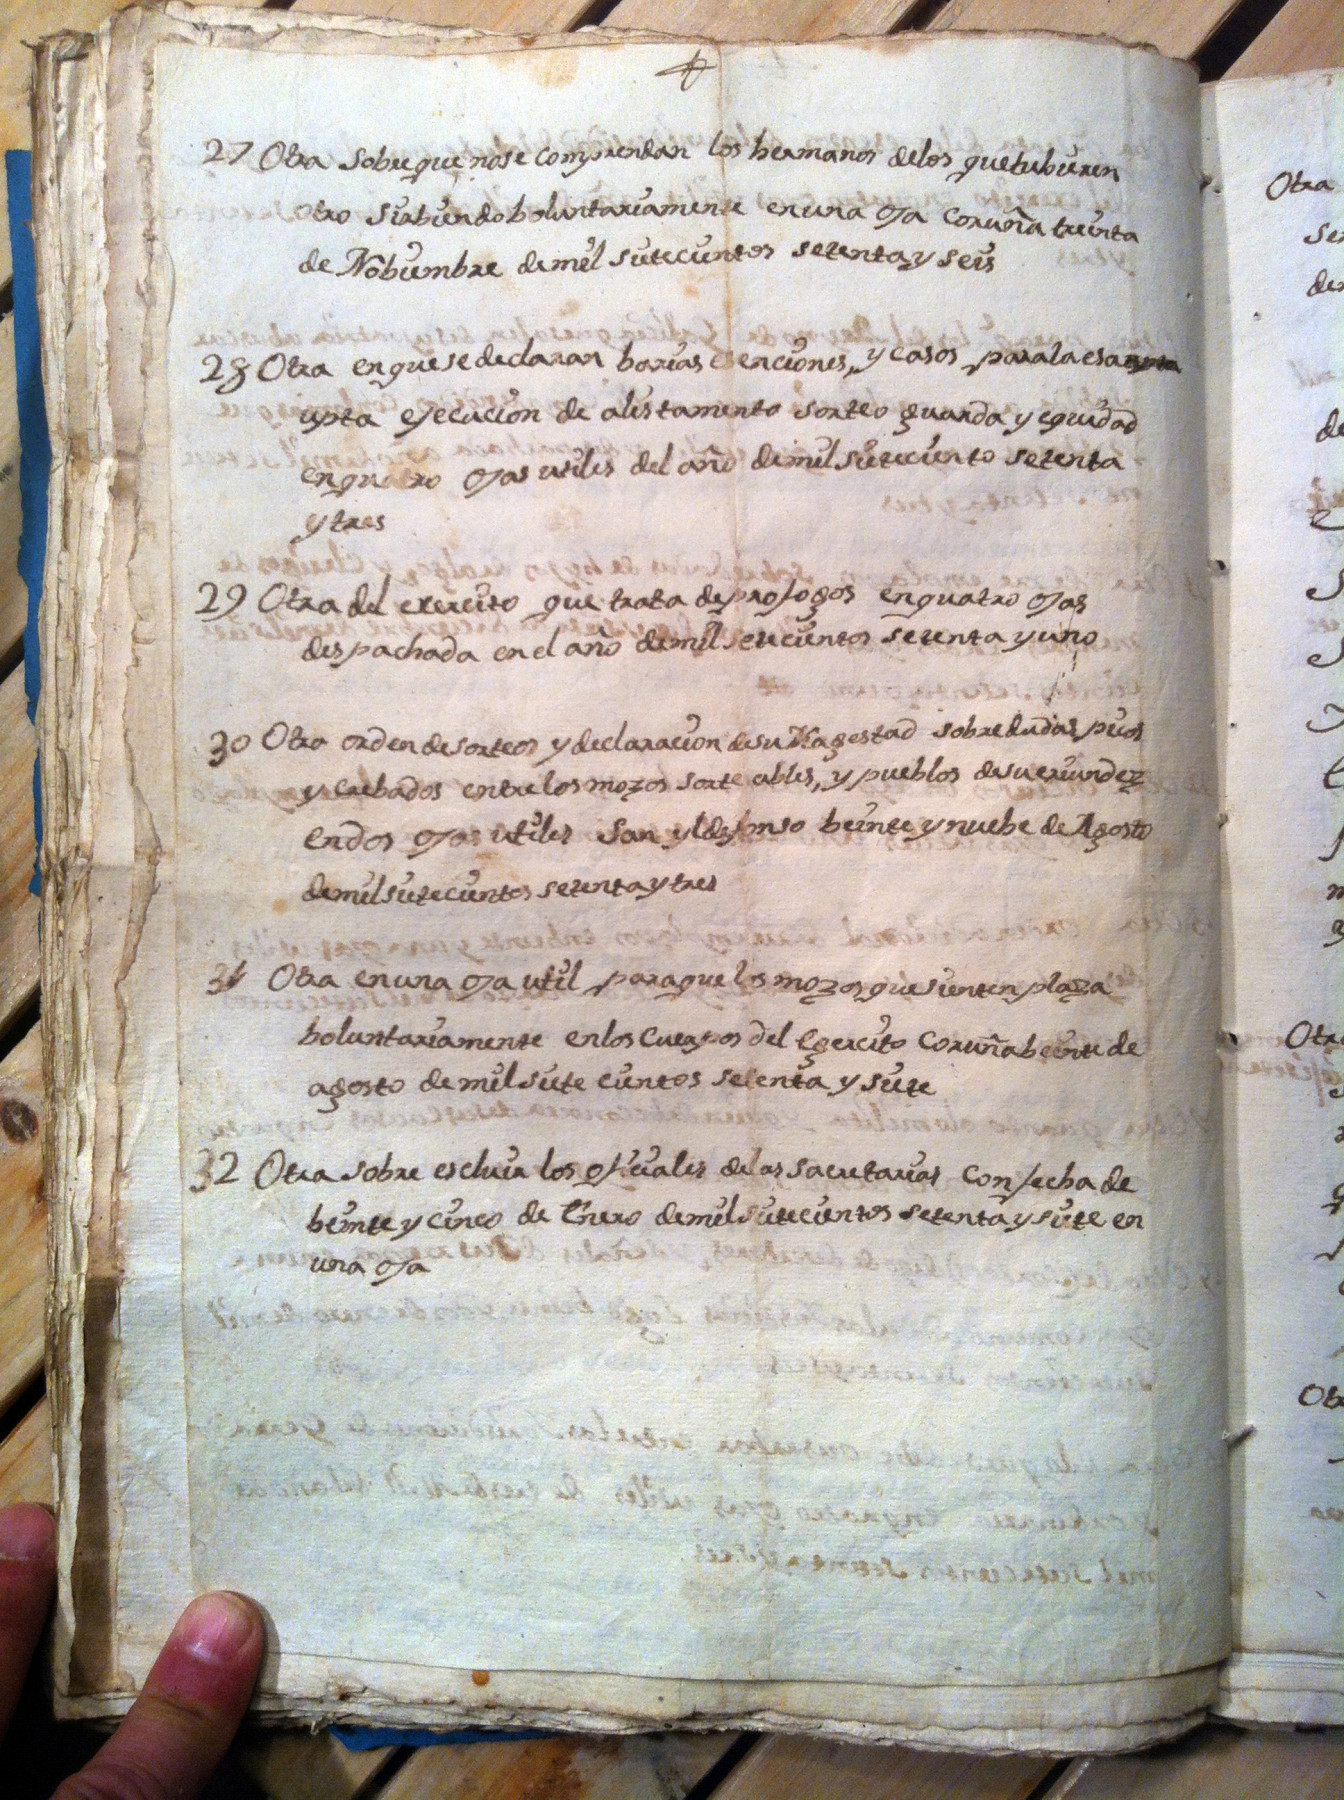 27 Otra sobre que nose comprendan los hermanos delos quetubieren
otro sirbiendo boluntariamente enuna oja Coruña treinta
de Nobiembre demil sietecientos setenta y seis
28 Otra enquese declaran barias esenciones, y casos para la esa
upta ejecucion de alistamento sorteo guarda y equidad
enquatro ojas utiles del año demil sieteciento setenta
y tres
29 Otra del exercito que trata deprofogos enquatro ojas
despachada en el año demil setecientos setenta y uno
30 Otra orden desorteos y declaracion desu Magestad sobre dudas, picos
y crebados entre los mozos sorteables, y pueblos desu
endos ojas utiles San yldefonso beinte y nuebe de Agosto
demil sietecientos setenta y tres
31 Otra enuna oja util para que los mozos, que sienten plaza
boluntariamente enlos Cuerpos del Egercito Coruña beinte de
agosto demil siete cientos setenta y siete
32 Otra sobre escluir los ofiziales delas sacretarias Con fecha de
beinte y cinco de Enero demil sietecientos setenta y siete en
una oja
Otra
de
Otra